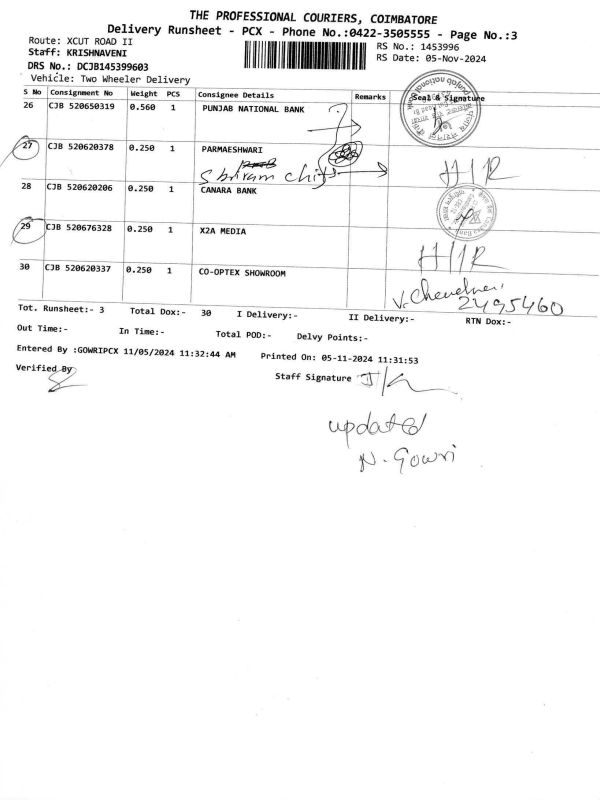 THE PROFESSIONAL COURIERS, COIMBATORE
Delivery Runsheet - PCX - Phone No.:0422-3505555 - Page No.:3
Route: XCUT ROAD II
RS No.: 1453996
Staff: KRISHNAVENI
RS Date: 05-Nov-2024
DRS No.: DCJB145399603
Vehicle: Two Wheeler Delivery
S No Consignment No Weight PCS Consignee Details Remarks Seal & Signature
26 CJB 520650319 0.560 1 PUNJAB NATIONAL BANK
27 CJB 520620378 0.250 1 PARMAESHWARI
H/R
28 CJB 520620206 0.250 1 CANARA BANK
29 CJB 520676328 0.250 1 X2A MEDIA
H/R
30 CJB 520620337 0.250 1 CO-OPTEX SHOWROOM
2495460
Tot. Runsheet:- 3 Total Dox:- 30 I Delivery:- II Delivery:- RTN Dox:-
Out Time:- In Time:- Total POD:- Delvy Points:-
Entered By :GOWRIPCX 11/05/2024 11:32:44 AM Printed On: 05-11-2024 11:31:53
Verified By
Staff Signature
updated
N. Gowri